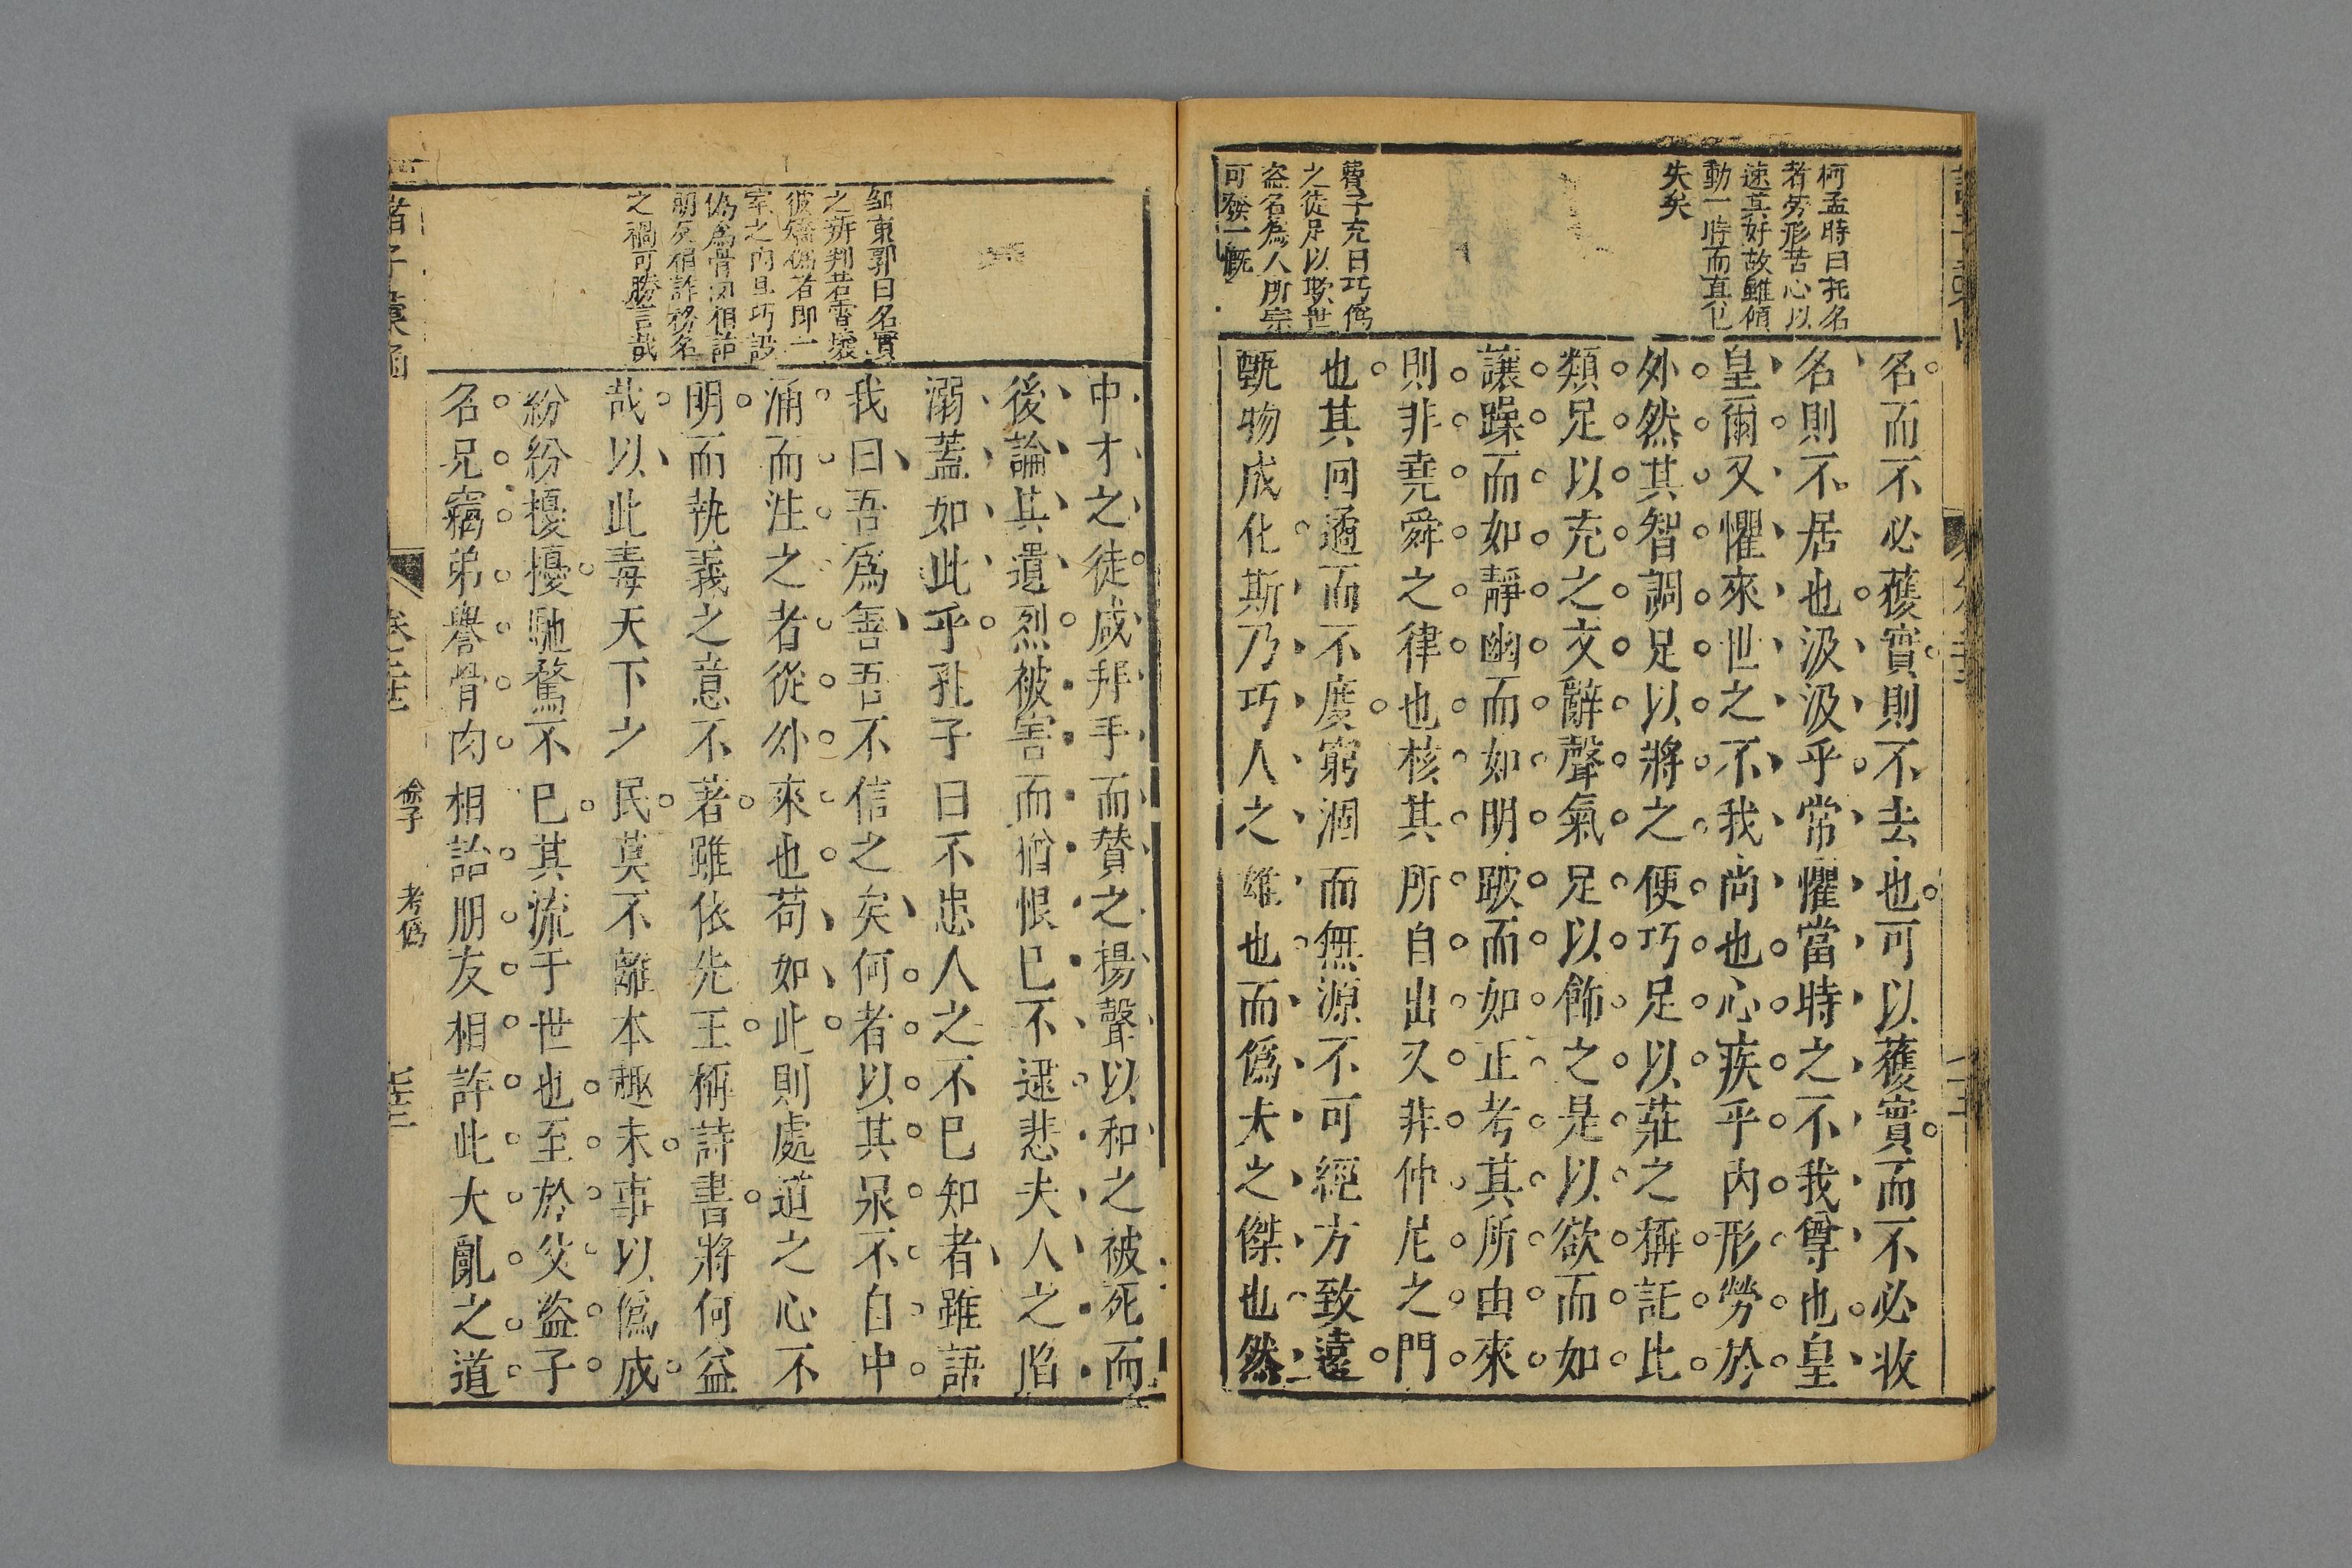 柯孟時曰托名
者勞形苦心以
速其好故雖傾
動一時而直已
失矣
費子充曰巧偽
之徒足以欺世
盜名為人所宗
可發一慨
名而不必獲實則不去也可以獲實而不必收
名則不居也汲汲乎常懼當時之不我尊也皇
皇爾又懼來世之不我尚也心疾乎內形勞於
外然其智調足以將之便巧足以莊之稱託比
類足以充之文辭聲氣足以飾之是以欲而如
讓躁而如靜幽而如明跛而如正考其所由來
則非堯舜之律也核其所自出又非仲尼之門
也其回遹而不度窮涸而無源不可經方致遠
甄物成化斯乃巧人之雄也而偽夫之傑也然
鄒東郭曰名實
之辨判若霄壤
彼矯偽者即一
室之內且巧設
偽為骨肉相詒
朋友相詐務名
之禍可勝言哉
中才之徒咸拜手而贊之揚聲以和之被死而
後論其遺烈被害而猶恨巳不逮悲夫人之陷
溺蓋如此乎孔子曰不患人之不巳知者雖語
我曰吾為善吾不信之矣何者以其泉不自中
涌而注之者從外來也苟如此則處道之心不
明而執義之意不著雖依先王稱詩書將何益
哉以此毒天下之民莫不離本趣末事以偽成
紛紛擾擾馳騖不巳其流于世也至於父盜子
名兄竊弟譽骨肉相詒朋友相詐此大亂之道
諸子彙函
考偽